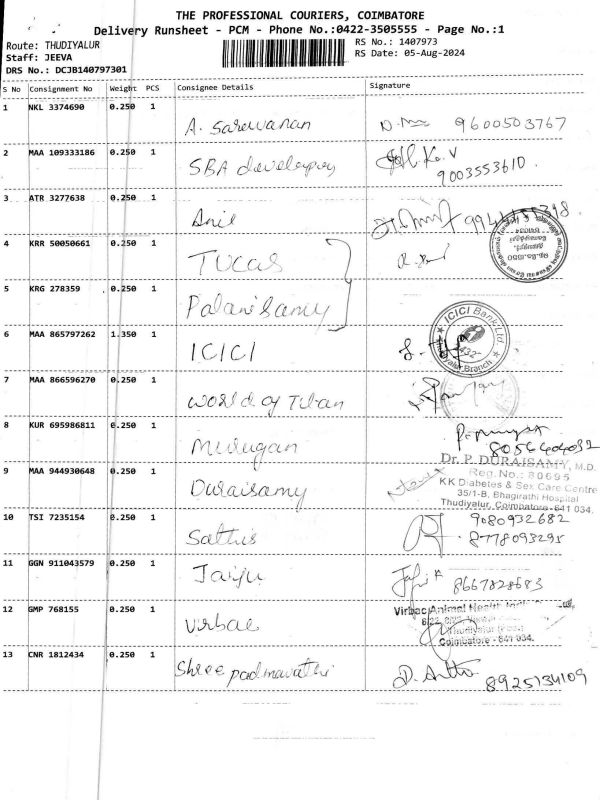 THE PROFESSIONAL COURIERS, COIMBATORE
Delivery Runsheet - PCM - Phone No.:0422-3505555 - Page No.:1
Route: THUDIYALUR
RS No.: 1407973
Staff: JEEVA
RS Date: 05-Aug-2024
DRS No.: DCJB140797301
S No Consignment No Weight PCS Consignee Details Signature
1 NKL 3374690 0.250 1 A. Sarewanan 9600503767
2 MAA 109333186 0.250 1 SBA developers 9003553610
3 ATR 3277638 0.250 1 Anil
4 KRR 50050661 0.250 1 Tucas
5 KRG 278359 0.250 1 Palanisamy
6 MAA 865797262 1.350 1 ICICI
ICICI Bank Ltd.
Thudiyalur Branch
7 MAA 866596270 0.250 1 World of Titan
8 KUR 695986811 0.250 1 Murugan
9 MAA 944930648 0.250 1 Duraisamy
Dr. P. DURAISAMY, M.D.
Reg.No.: 80695
KK Diabetes & Sex Care Centre
35/1-B, Bhagirathi Hospital
Thudiyalur, Coimbatore-641 034.
10 TSI 7235154 0.250 1 Sathis 9080932682
8778093295
11 GGN 911043579 0.250 1 Jaiju 8667828683
12 GMP 768155 0.250 1 Virbac
Virbac Animal Health
Thudiyalur
Coimbatore - 641 034.
13 CNR 1812434 0.250 1 Shree padmavathi 8925134109